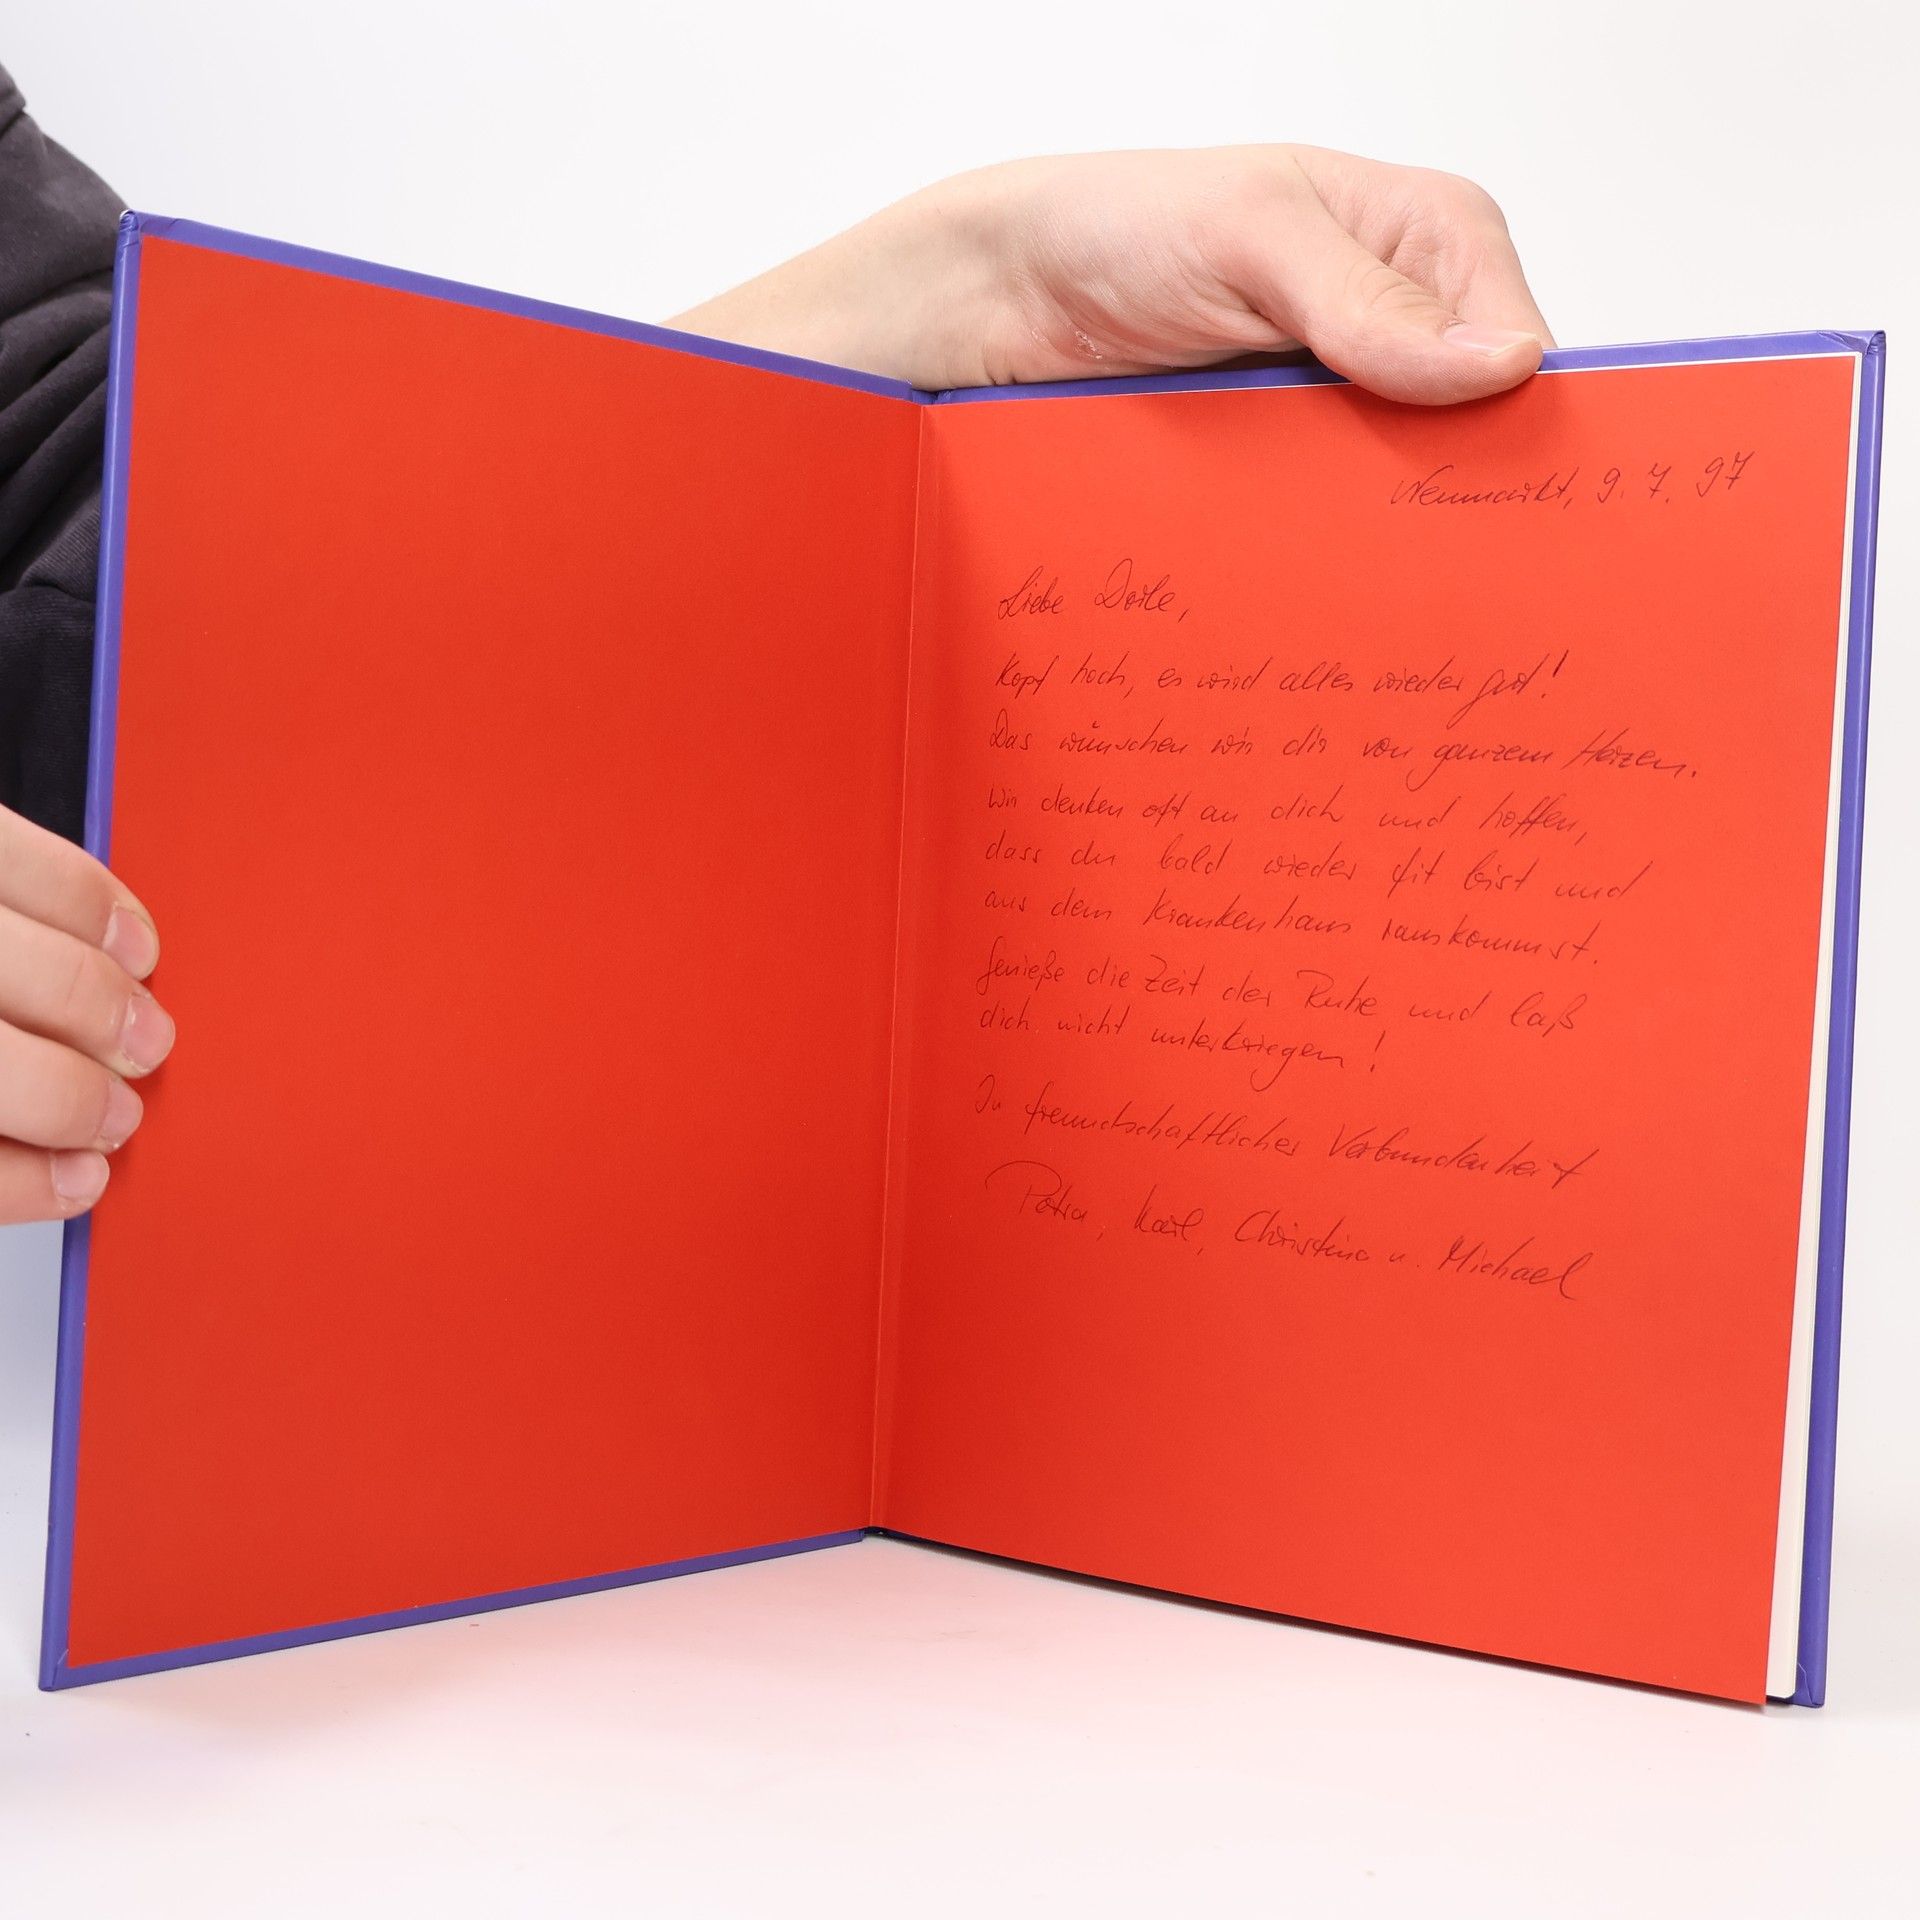 Neumarkt, 9. 7. 97
Liebe Dorle,
Kopf hoch, es wird alles wieder gut!
Das wünschen wir dir von ganzem Herzen.
Wir denken oft an dich und hoffen,
dass du bald wieder fit bist und
aus dem Krankenhaus rauskommst.
Genieße die Zeit der Ruhe und laß
dich nicht unterkriegen!
In freundschaftlicher Verbundenheit
Petra, Karl, Christina u. Michael